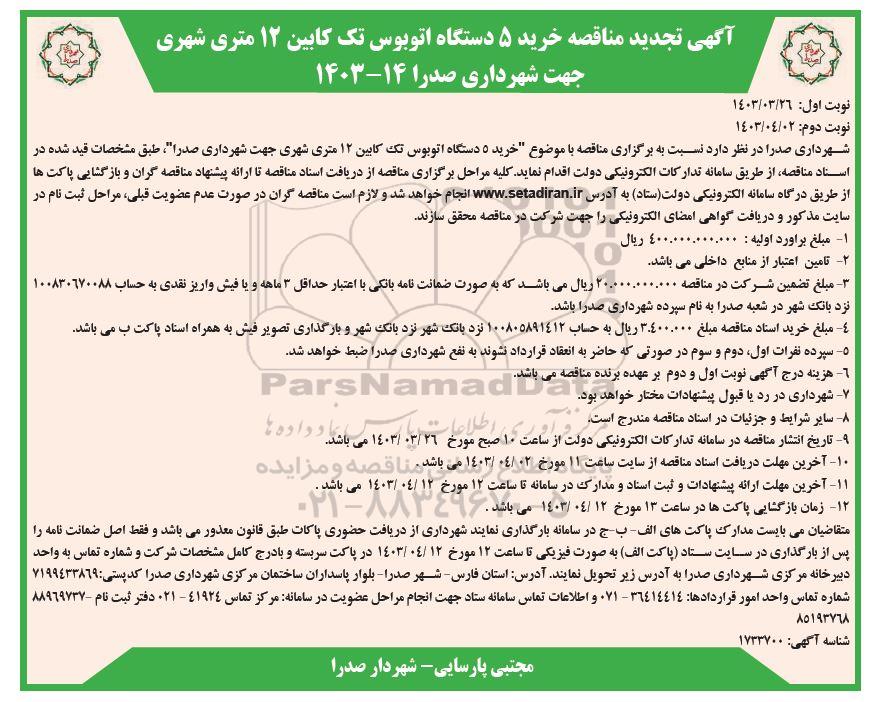 آگهی تجدید مناقصه خرید ۵ دستگاه اتوبوس تک کابین ۱۲ متری شهری
جهت شهرداری صدرا ۱۴-۱۴۰۳
نوبت اول: ۱۴۰۳/۰۳/۲۶
نوبت دوم: ۱۴۰۳/۰۴/۰۲
شهرداری صدرا در نظر دارد نسبت به برگزاری مناقصه با موضوع "خرید ۵ دستگاه اتوبوس تک کابین ۱۲ متری شهری جهت شهرداری صدرا"، طبق مشخصات قید شده در
اسناد مناقصه، از طریق سامانه تدارکات الکترونیکی دولت اقدام نماید.کلیه مراحل برگزاری مناقصه از دریافت اسناد مناقصه تا ارائه پیشنهاد مناقصه گران و بازگشایی پاکت ها
از طریق درگاه سامانه الکترونیکی دولت(ستاد) به آدرس www.setadiran.ir انجام خواهد شد و لازم است مناقصه گران در صورت عدم عضویت قبلی، مراحل ثبت نام در
سایت مذکور و دریافت گواهی امضای الکترونیکی را جهت شرکت در مناقصه محقق سازند.
۱- مبلغ براورد اولیه : ۴۰۰.۰۰۰.۰۰۰.۰۰۰ ریال
۲- تامین اعتبار از منابع داخلی می باشد.
۳- مبلغ تضمین شرکت در مناقصه ۲۰.۰۰۰.۰۰۰.۰۰۰ ریال می باشد که به صورت ضمانت نامه بانکی با اعتبار حداقل ۳ ماهه و یا فیش واریز نقدی به حساب ۱۰۰۸۳۰۶۷۰۰۸۸
نزد بانک شهر در شعبه صدرا به نام سپرده شهرداری صدرا باشد.
۴- مبلغ خرید اسناد مناقصه مبلغ ۳.۴۰۰.۰۰۰ ریال به حساب ۱۰۰۸۰۵۸۹۱۴۱۲ نزد بانک شهر نزد بانک شهر و بارگذاری تصویر فیش به همراه اسناد پاکت ب می باشد.
۵- سپرده نفرات اول، دوم و سوم در صورتی که حاضر به انعقاد قرارداد نشوند به نفع شهرداری صدرا ضبط خواهد شد.
۶- هزینه درج آگهی نوبت اول و دوم بر عهده برنده مناقصه می باشد.
۷- شهرداری در رد یا قبول پیشنهادات مختار خواهد بود.
۸- سایر شرایط و جزئیات در اسناد مناقصه مندرج است.
۹- تاریخ انتشار مناقصه در سامانه تدارکات الکترونیکی دولت از ساعت ۱۰ صبح مورخ ۲۶ /۰۳ /۱۴۰۳ می باشد.
۱۰- آخرین مهلت دریافت اسناد مناقصه از سایت ساعت ۱۱ مورخ ۰۲ /۰۴ /۱۴۰۳ می باشد .
۱۱- آخرین مهلت ارائه پیشنهادات و ثبت اسناد و مدارک در سامانه تا ساعت ۱۲ مورخ ۱۲ /۰۴ /۱۴۰۳ می باشد .
۱۲- زمان بازگشایی پاکت ها در ساعت ۱۳ مورخ ۱۲ /۰۴ /۱۴۰۳ می باشد .
متقاضیان می بایست مدارک پاکت های الف- ب-ج در سامانه بارگذاری نمایند شهرداری از دریافت حضوری پاکات طبق قانون معذور می باشد و فقط اصل ضمانت نامه را
پس از بارگذاری در سایت ستاد (پاکت الف) به صورت فیزیکی تا ساعت ۱۲ مورخ ۱۲ /۰۴ /۱۴۰۳ در پاکت سربسته و بادرج کامل مشخصات شرکت و شماره تماس به واحد
دبیرخانه مرکزی شهرداری صدرا به آدرس زیر تحویل نمایند. آدرس: استان فارس- شهر صدرا- بلوار پاسداران ساختمان مرکزی شهرداری صدرا کدپستی:۷۱۹۹۴۳۳۸۶۹
شماره تماس واحد امور قراردادها: ۳۶۴۱۴۴۱۴ - ۰۷۱ و اطلاعات تماس سامانه ستاد جهت انجام مراحل عضویت در سامانه: مرکز تماس ۴۱۹۲۴ - ۰۲۱ دفتر ثبت نام ۸۸۹۶۹۷۳۷-
۸۵۱۹۳۷۶۸
شناسه آگهی: ۱۷۳۳۷۰۰
مجتبی پارسایی- شهردار صدرا
ParsNamadData
مرکز فرآوری اطلاعات پارس نماد داده ها
پایگاه اطلاع رسانی مناقصه و مزایده
۰۲۱-۸۸۳۴۹۶۷۰-۵